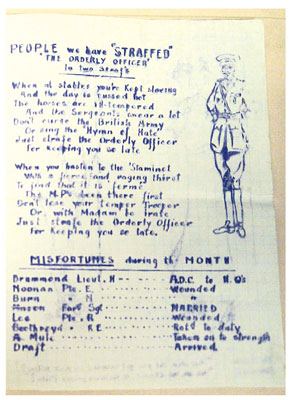 PEOPLE we have "STRAFFED"
"THE ORDERLY OFFICER"
In two Strafs
When at stables you're Kept slaving
And the day is cussed hot
The horses are ill-tempered
And the Sergeants swear a lot
Don't curse the British Army
Or sing the "Hymn of Hate"
Just strafe the Orderly Officer
for Keeping you so late.
When you hasten to the 'Staminet
With a fierce and raging thirst
To find that it is ferme
Th' M.P's been there first
Don't lose your temper Trooper
Or, with Madam be irate
Just strafe the Orderly Officer
for Keeping you so late.
MISFORTUNES during the MONTH
Drummond Lieut. H A.D.C. to H.Q's
Noonan Pte. E. Wounded
Burn " N "
Hinson Farr Sgt MARRIED
Lee Pte. R Wounded
Beethroyd " RE to duty
A Mule Taken on to strength
Draft Arrived